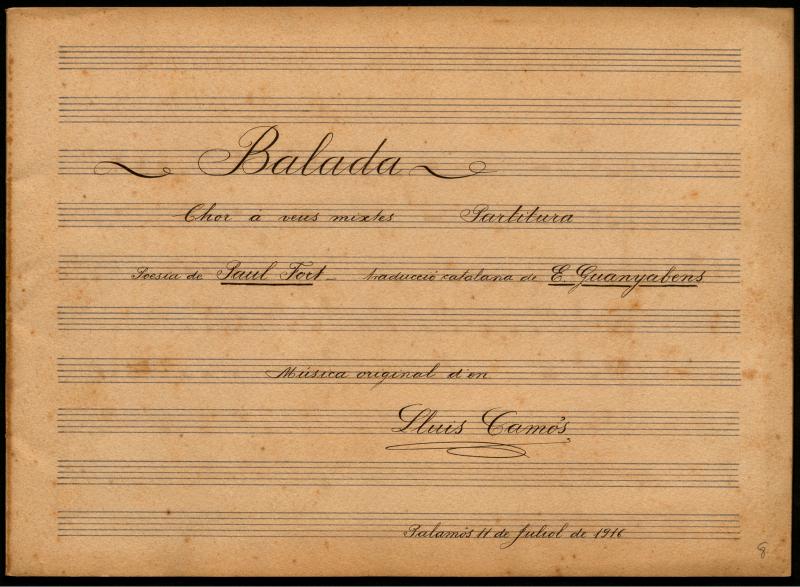 Balada
Chor à veus mixtes Partitura
Poesía de Paul Fort - traducció catalana de E. Guanyabens
Música original d'en
Lluis Camós
Palamós 11 de Juliol de 1916
8.